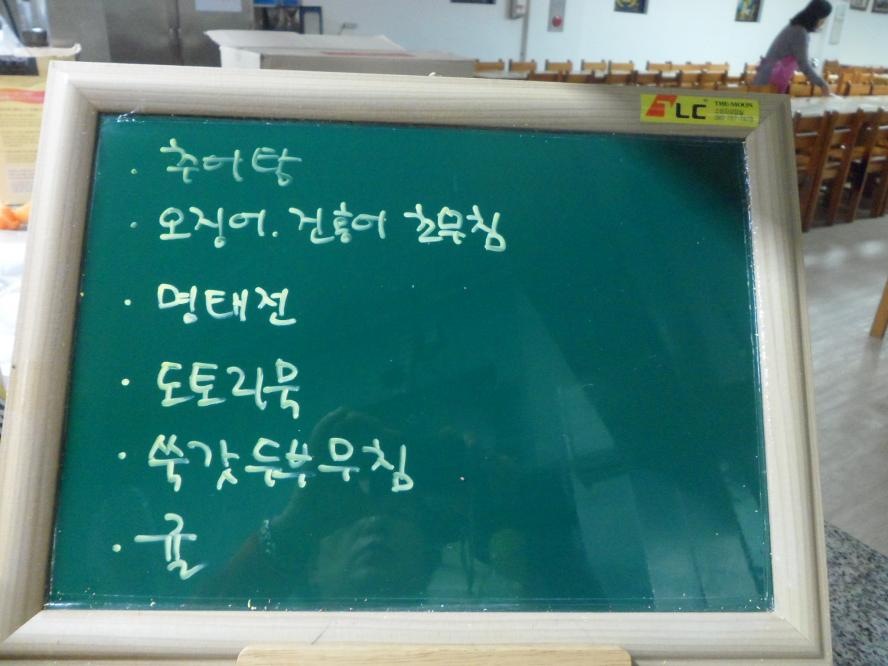 FLC THE MOON
· 추어탕
· 오징어. 건홍어 초무침
· 명태전
· 도토리묵
· 쑥갓두부무침
· 귤